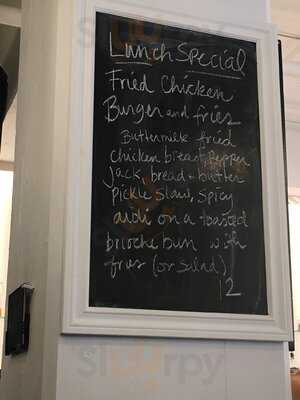 Lunch Special
Fried Chicken
Burger and fries
Buttermilk fried
chicken breast, pepper
Jack, bread + butter
Pickle Slaw, Spicy
aioli on a toasted
brioche bun with
fries (or salad)
12
Sluurpy